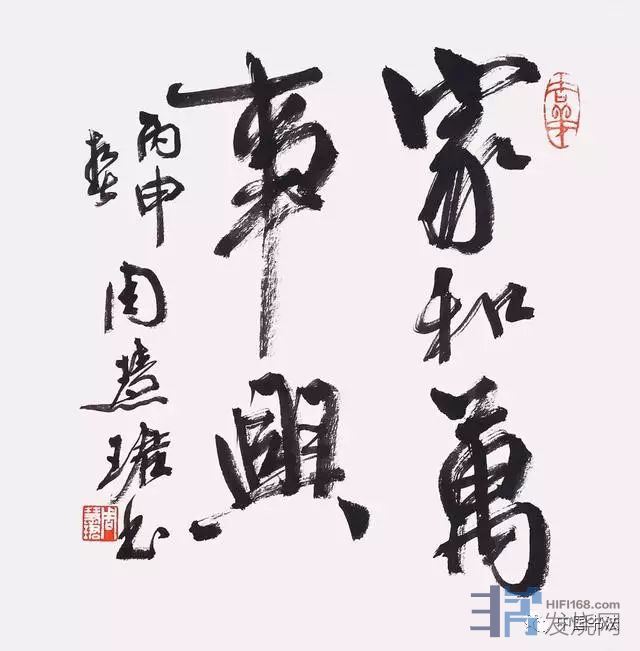 家和萬
事興
丙申
春
周慧珺书
HIFI168.com
发烧网
中国书法